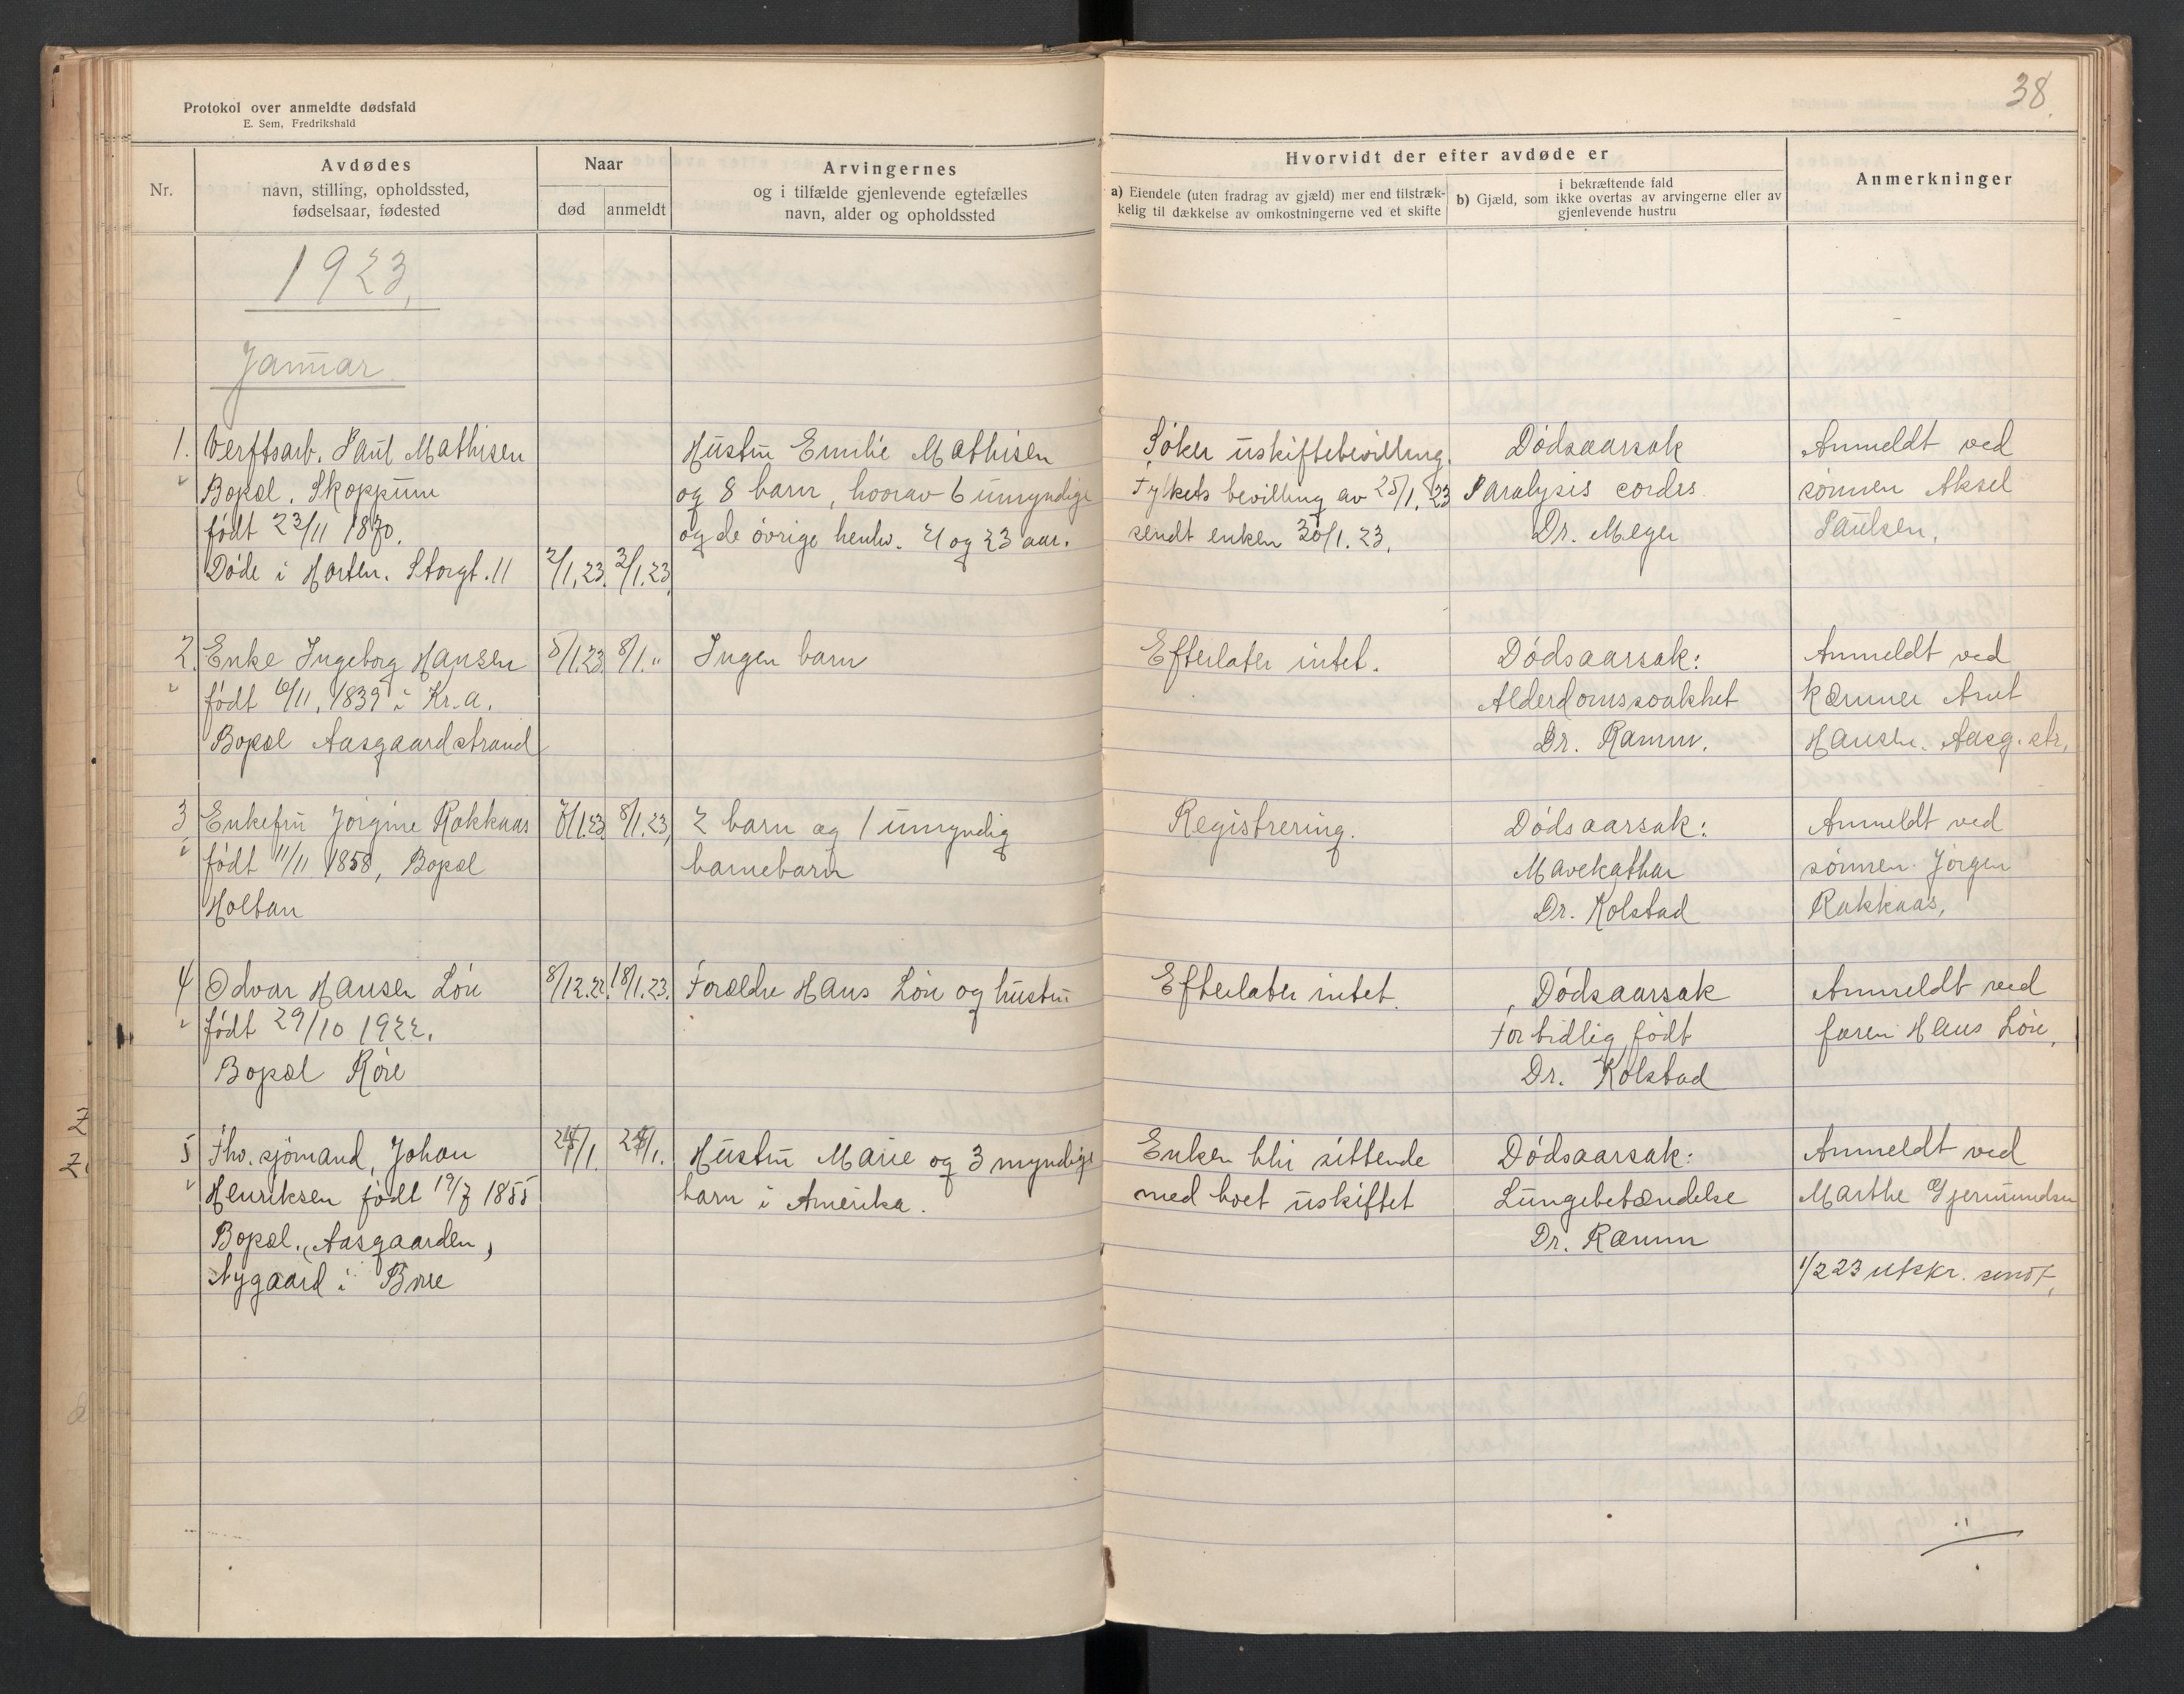 Protokol over anmeldte dødsfald
E. Sem, Fredrikshald
38.
Nr.
Avdødes
navn, stilling, opholdssted,
fødselsaar, fødested
Naar
død
anmeldt
Arvingernes
og i tilfælde gjenlevende egtefælles
navn, alder og opholdssted
Hvorvidt der efter avdøde er
a) Eiendele (uten fradrag av gjæld) mer end tilstræk-
kelig til dækkelse av omkostningerne ved et skifte
i bekræftende fald
b) Gjæld, som ikke overtas av arvingerne eller av
gjenlevende hustru
Anmerkninger
1923,
Januar
1. Verftsarb. Paul Mathisen
Bopæl. Skoppum
født 23/11 1870.
Døde i Horten. Storgt. 11
2/1.23. 3/1.23.
Hustru Emilie Mathisen
og 8 barn, hvorav 6 umyndige
og de øvrige henhv. 21 og 23 aar.
Søker uskiftebevilling.
Fylkets bevilling av 25/1. 23
sendt enken 30/1. 23.
Dødsaarsak
Paralysis cordis.
Dr. Meyer
Anmeldt ved
sønnen Aksel
Paulsen.
2. Enke Ingeborg Hansen
født 6/11. 1839 i Kr.a.
Bopæl Aasgaardstrand
5/1.23. 8/1. "
Ingen barn
Efterlater intet.
Dødsaarsak:
Alderdomssvakhet
Dr. Ramm.
Anmeldt ved
kæmner Arnt
Hansen. Aasg.str.
3 Enkefru Jørgine Rakkaas
født 11/11 1858, Bopæl
Holtan
7/1.23. 8/1.23.
2 barn og 1 umyndig
barnebarn
Registrering.
Dødsaarsak:
Mavekathar
Dr. Kolstad
Anmeldt ved
sønnen Jørgen
Rakkaas,
4 Odvar Hansen Löre
født 29/10 1922.
Bopæl Røre
8/12.22. 18/1.23.
Forældre Hans Löre og hustru
Efterlater intet.
Dødsaarsak
For tidlig født
Dr. Kolstad
Anmeldt ved
faren Hans Löre,
5 Fhv. sjømand, Johan
Henriksen født 19/7 1855
Bopæl. Aasgaarden,
Nygaard i Borre
Hustru Marie og 3 myndige
barn i Amerika.
Enken blir sittende
med boet uskiftet
Dødsaarsak:
Lungebetændelse
Dr. Ramm
Anmeldt ved
Marthe Gjermundsen
1/2 23 utskr. sendt.